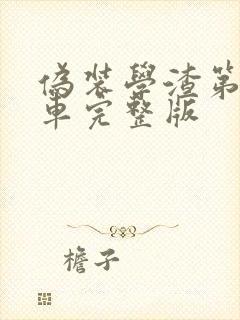 偽裝學渣第
車完整版
檐子